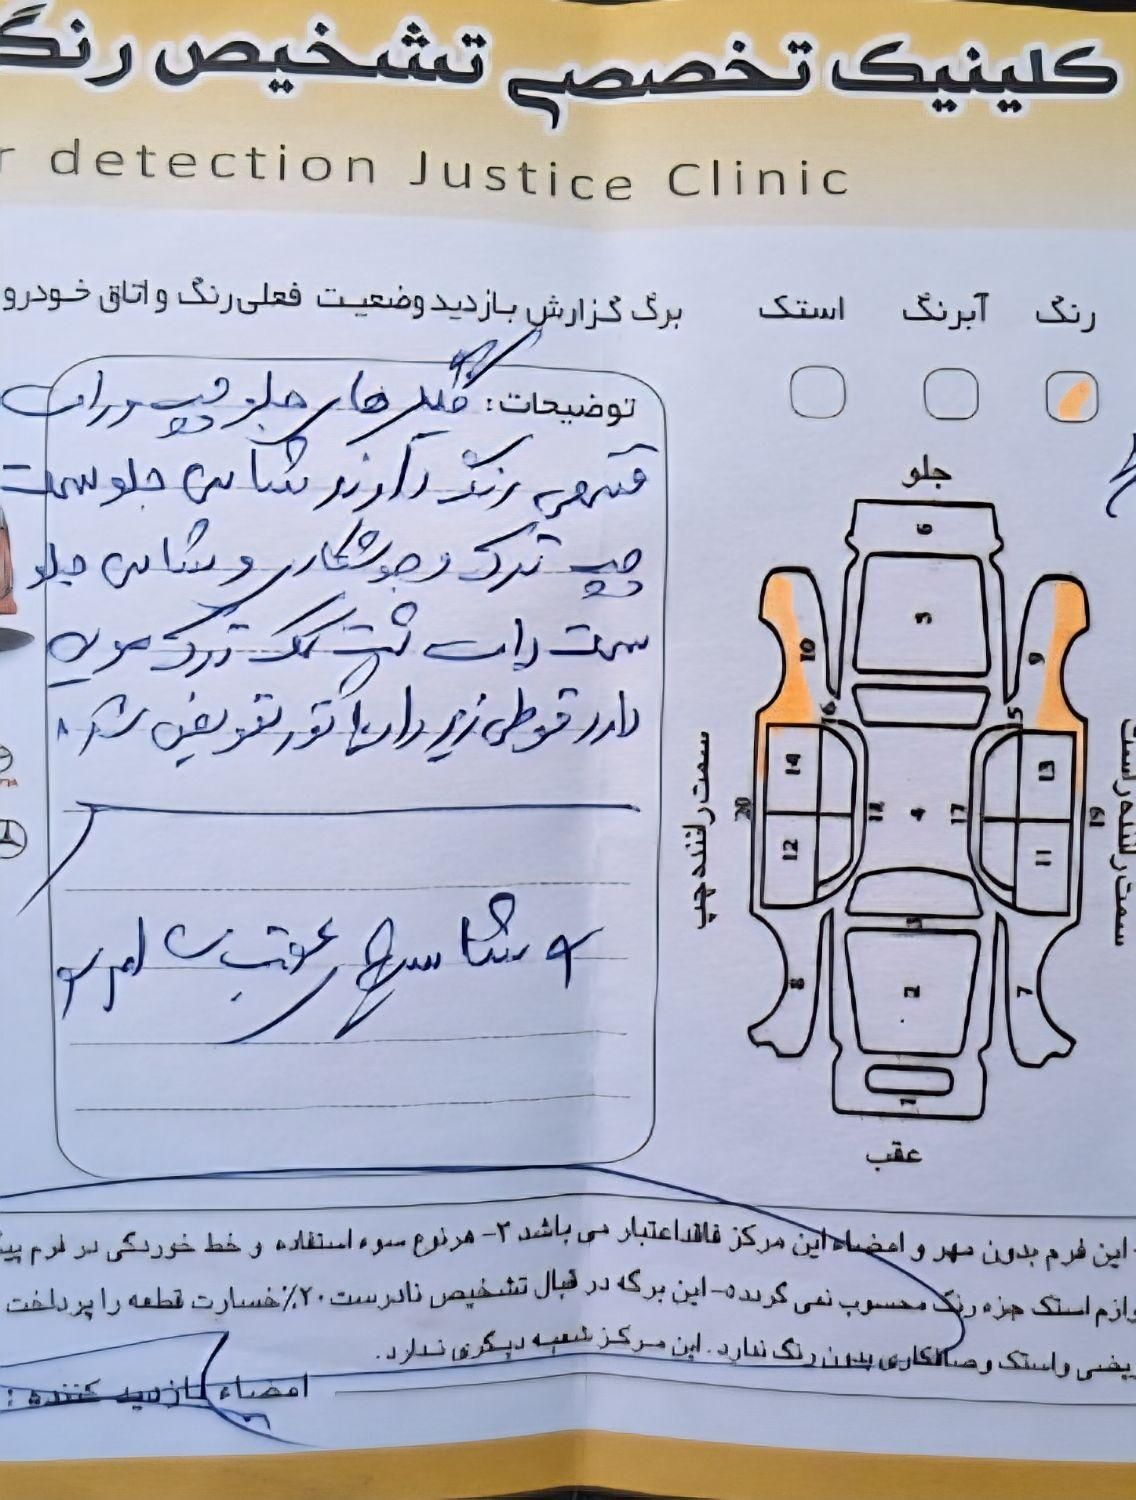 کلینیک تخصصی تشخیص رنگ
r detection Justice Clinic
برگ گزارش بازدید وضعیت فعلی رنگ و اتاق خودرو
رنگ
آبرنگ
استک
توضیحات: گلگیر های جلو چپ و راست
قسمتی رنگ دارند شاسی جلو سمت
چپ ترک و جوشکاری و شاسی جلو
سمت راست پشت کمک ترک مویی
دارد قوطی زیر رادیاتور تعویض شده
دو شاسی عقب سالم
جلو
6
5
10
9
16
15
14
13
سمت راننده چپ
20
18
4
17
19
سمت راننده راست
12
11
3
8
2
7
1
عقب
این فرم بدون مهر و امضاء این مرکز فاقد اعتبار می باشد ۲- هرنوع سوء استفاده و خط خوردگی در فرم
لوازم استک جزء رنگ محسوب نمی گردد-این برگه در قبال تشخیص نادرست ۲۰٪ خسارت قطعه را پرداخت
واستک و صافکاری بدون رنگ ندارد. این مرکز شعبه دیگری ندارد.
امضاء بازدید کننده :